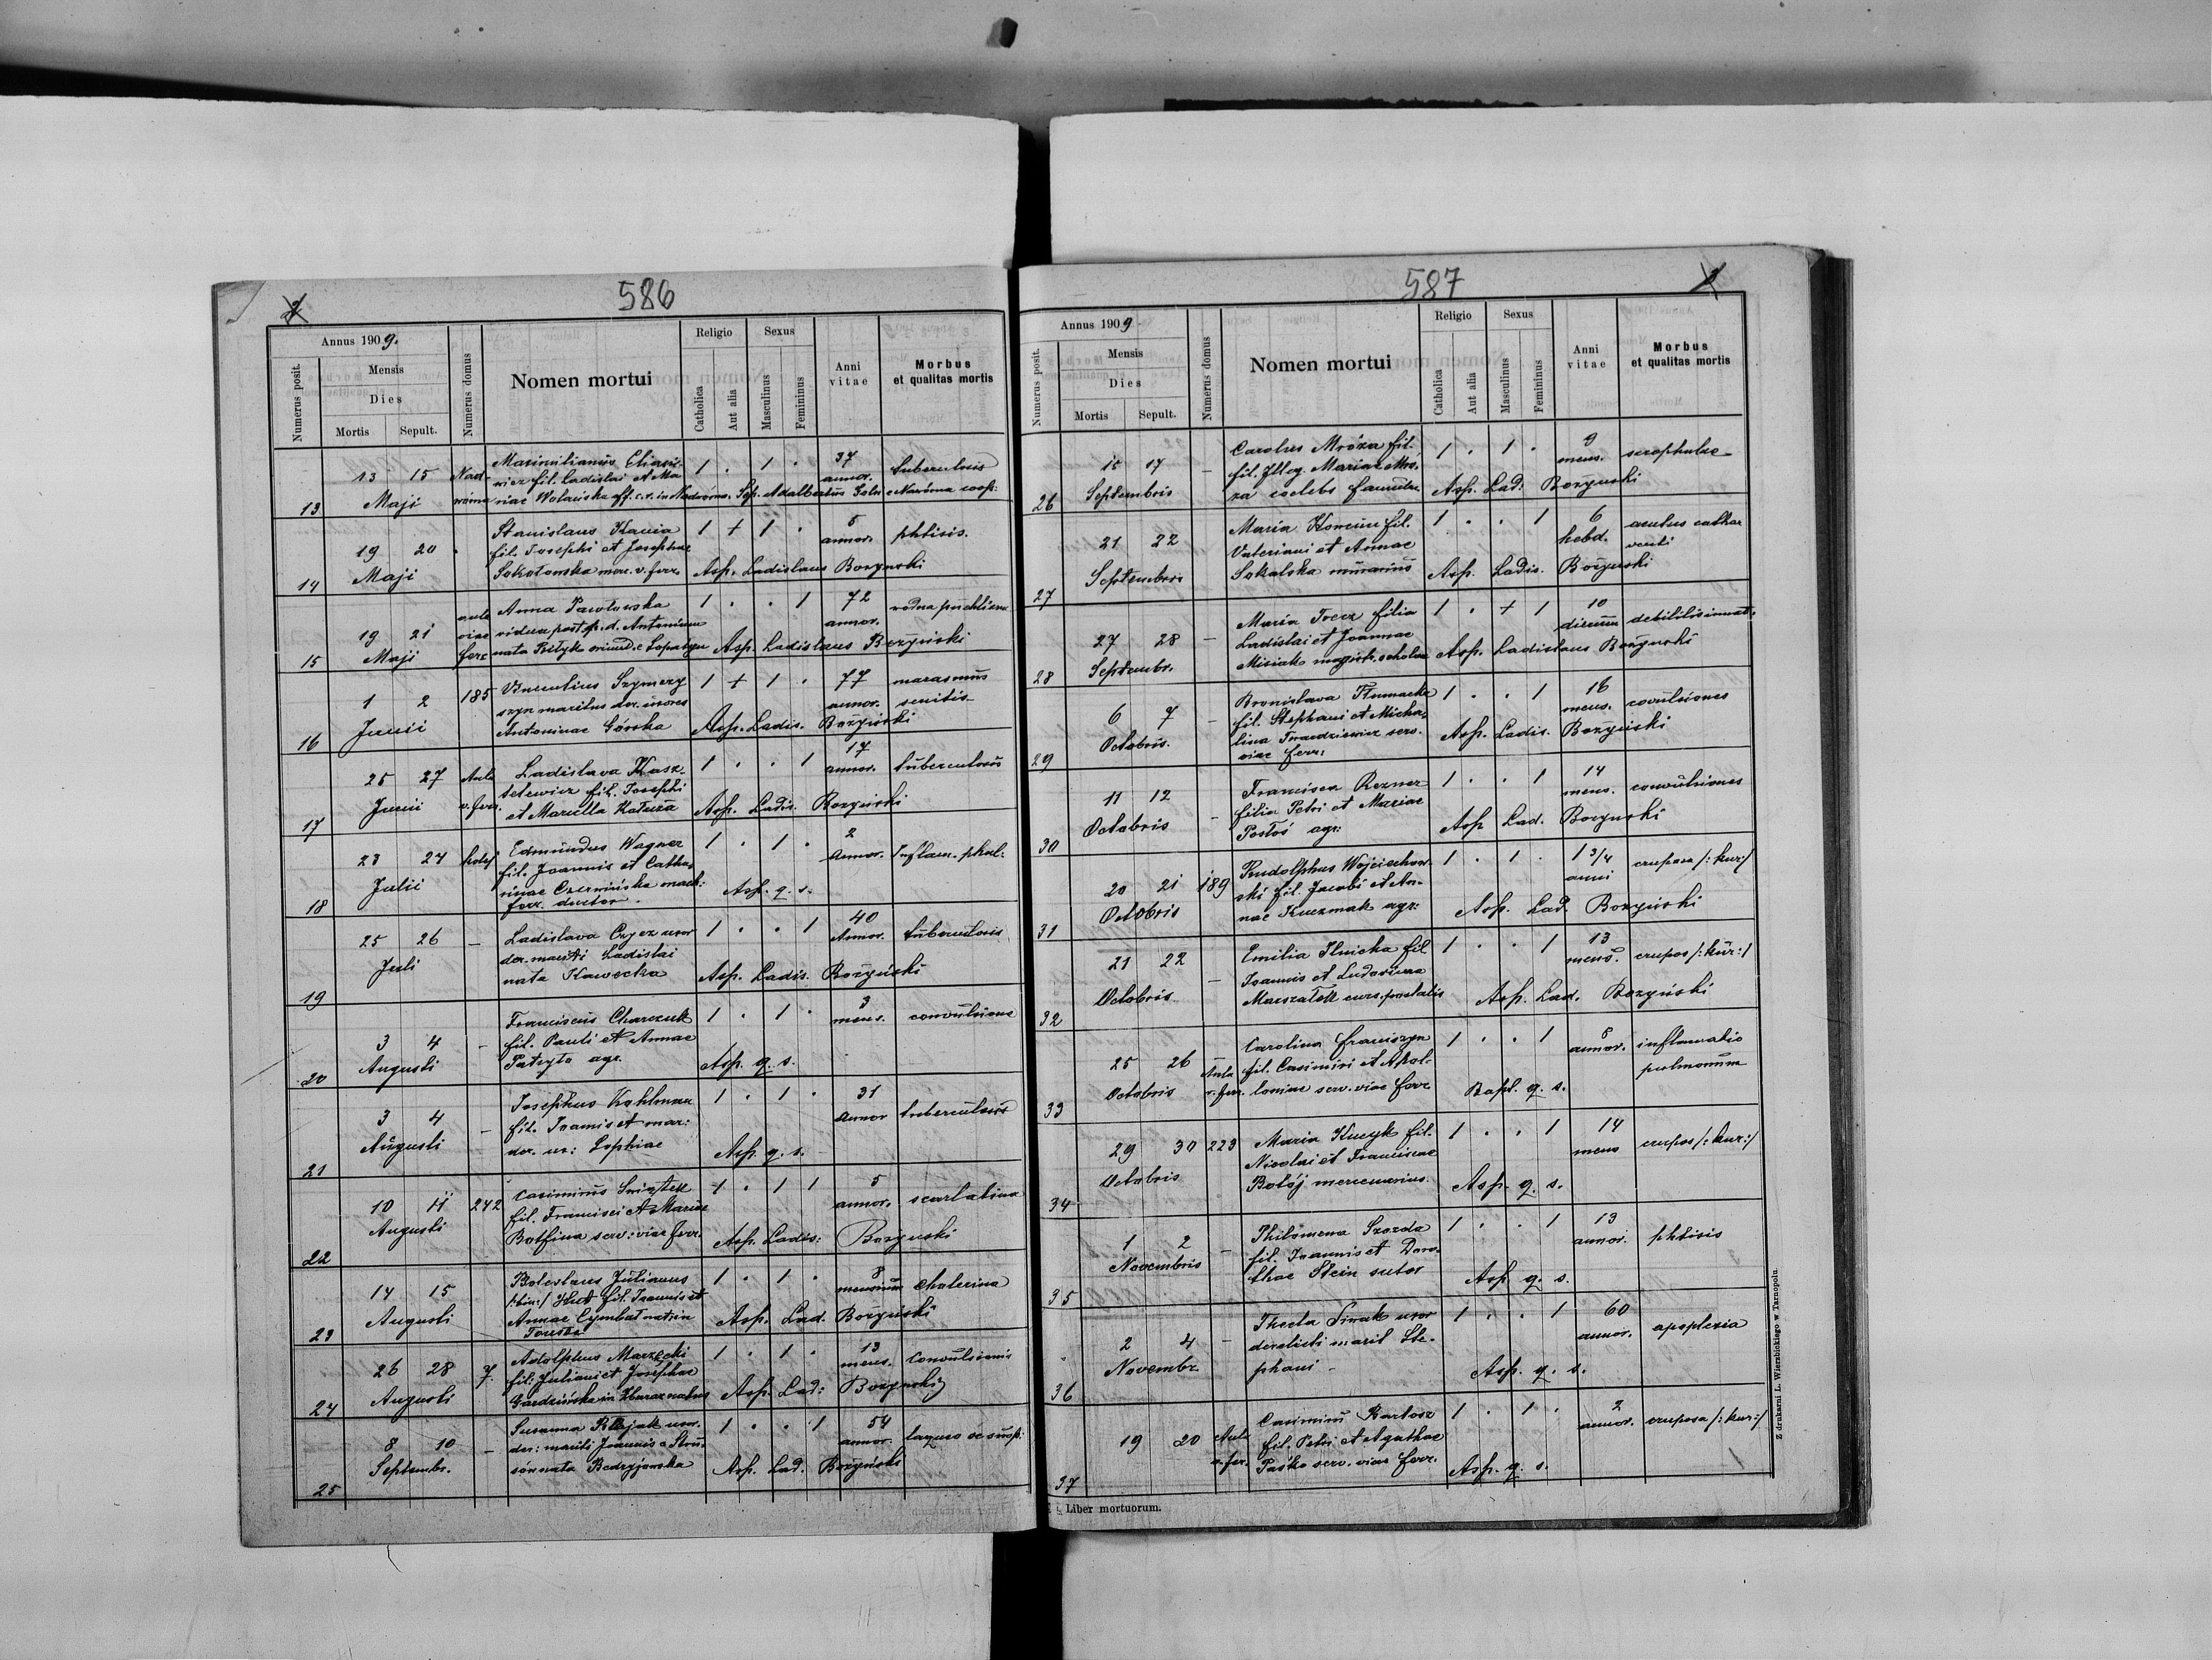 586
2
Annus 1909.
Numerus posit.
Mensis
Dies
Mortis
Sepult.
Numerus domus
Nomen mortui
Religio
Catholica
Aut alia
Sexus
Masculinus
Femininus
Anni vitae
Morbus et qualitas mortis
13
13 15
Maji
Nad-
wórna
Maximilianus Eliasie-
wicz fil. Ladislai et Ma
riae Wolańska off. c. r. in Nadwórna. Sep. Adalbertus
1 . 1 .
37
annor.
tuberculosis
14
19 20
Maji
Stanislaus Kania
fil. Josephi et Josephae
Sokołowska v. ferr.
1 + 1 .
5
annor.
phtisis.
Asp. Ladislaus Bożyński
15
19 21
Maji
aula
viae
ferr
Anna Pawłowska
vidua post p. d. Antonium
nata oriund. e Łopatyn
1 . . 1
72
annor.
wodna puchlina
Asp. Ladislaus Bożyński
16
1 2
Junii
185
Vincentius Szymczy
szyn maritus der. uxores
Antoninae Górska
1 + 1 .
77
annor.
marasmus
senilis
Asp. Ladis. Bożyński
17
25 27
Junii
Aula
v. ferr.
Ladislava Kasz-
telewicz fil. Josephi
et Marcella
1 . . 1
17
annor.
tuberculosis
Asp. Ladis. Bożyński
18
23 24
Julii
Edmundus Wagner
fil. Joannis et Catha-
rinae Czerwińska mach:
ferr. ductor.
1 . 1 .
2
annor.
Inflam.
Asp. q. s.
19
25 26
Juli
—
Ladislava Czyż uxor
der. mariti Ladislai
nata Kawecka
1 . . 1
40
Annor.
tuberculosis
Asp. Ladis. Bożyński
20
3 4
Augusti
—
Franciscus Charczuk
fil. Pauli et Annae
Patryto agr.
1 . 1 .
3
mens.
convulsione
Asp. q. s.
21
3 4
Augusti
—
Josephus
fil. Joannis et mar:
der. ux: Sophiae
1 . 1 .
31
annor
tuberculosis
Asp. q. s.
22
10 11
Augusti
242
Casimirus Świątek
fil. Francisci et Mariae
Bołfina serv: viae ferr.
1 . 1 1
5
annor.
scarlatina
Asp. Ladis: Bożyński
23
14 15
Augusti
Boleslaus Julianus
/:bin:/ fil. Joannis et
Annae Cymbał natriin
1 . 1 .
8
mensium
cholerina
Asp. Lad. Bożyński
24
26 28
Augusti
7.
Adolphus Marzecki
fil: Juliani et Josephae
Gardzińska in Zbaraż natus
1 . 1 .
13
mens.
Convulsionis
Asp. Lad: Bożyński
25
8 10
Septembr.
—
Susanna uxor.
der: mariti Joannis e Stru-
sów nata Bedryjowska
1 . . 1
54
annor.
laqueo se susp:
Asp. Lad. Bożyński
587
Annus 1909
Numerus posit.
Mensis
Dies
Mortis
Sepult.
Numerus domus
Nomen mortui
Religio
Catholica
Aut alia
Sexus
Masculinus
Femininus
Anni vitae
Morbus et qualitas mortis
26
15 17
Septembris
—
Carolus Mróza fil.
fil. Illeg. Mariae Mró-
za caelebs famula
1 . 1 .
9
mens.
scrophulae
Asp. Lad: Bożyński
27
21 22
Septembris
Maria Koncur fil.
Valeriani et Annae
Sokalska murarius
1 . . 1
6
hebd.
acutus cathar
ventri
Asp. Ladis. Bożyński
28
27 28
Septembr.
—
Maria Trecz filia
Ladislai et Joannae
Misiak magistr. scholae
1 . + 1
10
dierum
debilitis innata
Asp. Ladislaus Bożyński
29
6 7
Octobris.
—
Bronislava Tłumacka
fil. Stephani et Micha-
lina Twardziewicz serv.
viae ferr:
1 . . 1
16
mens.
covulsiones
Asp. Ladis. Bożyński
30
11 12
Octobris
—
Francisca Rezner
filia Petri et Mariae
Postoś agr:
1 . . 1
14
mens.
convulsiones
Asp Lad. Bożyński
31
20 21
Octobris
189
Rudolphus Wojciechow-
ski fil. Jacobi et An-
nae Kuczmak agr:
1 . 1 .
1 3/4
anni
cruposa /:kur:/
Asp. Lad. Bożyński
32
21 22
Octobris
—
Emilia Ilnicka fil
Joannis et Ludovicae
Marszałek curs. postalis
1 . . 1
13
mens.
crupos /:kur:/
Asp. Lad. Bożyński
33
25 26
Octobris
Aula
v. ferr.
Carolina Franiszyn
fil. Casimiri et Apol-
loniae serv. viae ferr
1 . . 1
8
annor.
inflamatio
pulmonum
Bapt. q. s.
34
29 30
Octobris
223
Maria Kucyk fil.
Nicolai et Franciscae
Bołój mercenarius.
1 . . 1
14
mens
crupos /:kur:/
Asp. q. s.
35
1 2
Novembris
—
Philomena Szozda
fil. Joannis et Doro-
thae Stein sutor
1 . . 1
13
annor.
phtisis
Asp. q. s.
36
2 4
Novembr.
—
Thecla Siwak uxor
derelicti marit Ste-
phani -
1 . . 1
60
annor.
apoplexia
Asp. q. s.
37
19 20
Aula
v. fer.
Casimirus Bartosz
fil. Petri et Agathae
Paśko serv. viae ferr.
1 . 1 .
2
annor.
cruposa /:kur:/
Asp. q. s.
Liber mortuorum.
Z drukarni L. Wierzbickiego w Tarnopolu.